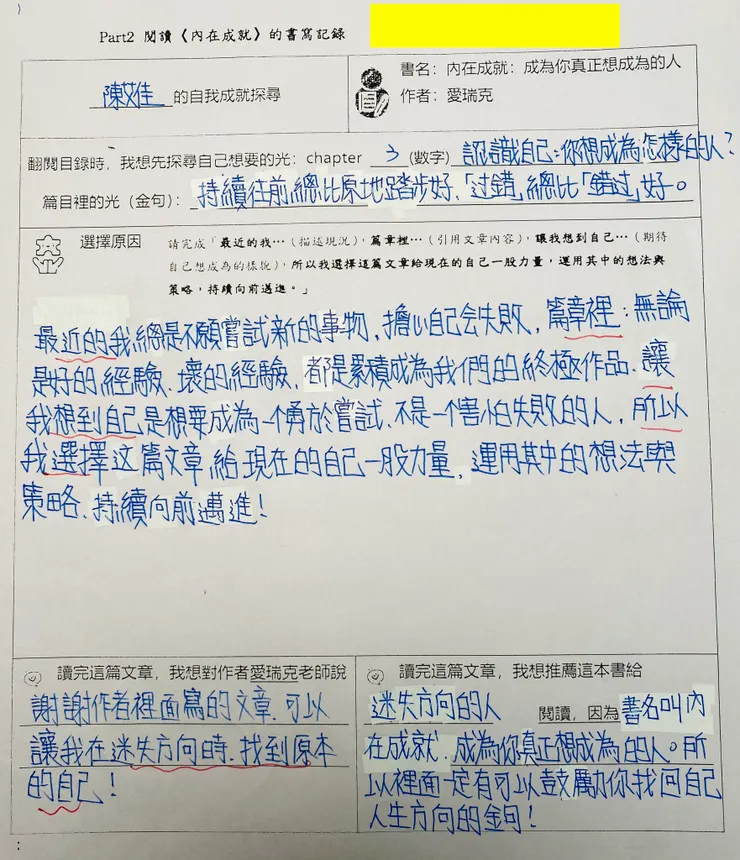 Part2 閱讀〈內在成就〉的書寫記錄
陳艾佳 的自我成就探尋
書名：內在成就：成為你真正想成為的人
作者：愛瑞克
翻閱目錄時，我想先探尋自己想要的光：chapter 3 (數字) 認識自己：你想成為怎樣的人？
篇目裡的光（金句）：持續往前總比原地踏步好，「过錯」總比「錯过」好。
選擇原因
請完成「最近的我…（描述現況），篇章裡…（引用文章內容），讓我想到自己…（期待
自己想成為的樣貌），所以我選擇這篇文章給現在的自己一股力量，運用其中的想法與
策略，持續向前邁進。」
最近的我總是不願嘗試新的事物，擔心自己会失敗，篇章裡：無論
是好的經驗、壞的經驗，都是累積成為我們的終極作品，讓
我想到自己是想要成為一个勇於嘗試，不是一个害怕失敗的人，所以
我選擇这篇文章給現在的自己一股力量，運用其中的想法與
策略、持續向前邁進！
讀完這篇文章，我想對作者愛瑞克老師說
謝謝作者裡面寫的文章，可以
讓我在迷失方向時，找到原本
的自己！
讀完這篇文章，我想推薦這本書給
迷失方向的人 閱讀，因為書名叫內
在成就，成為你真正想成為的人。所
以裡面一定有可以鼓勵你找回自己
人生方向的金句！